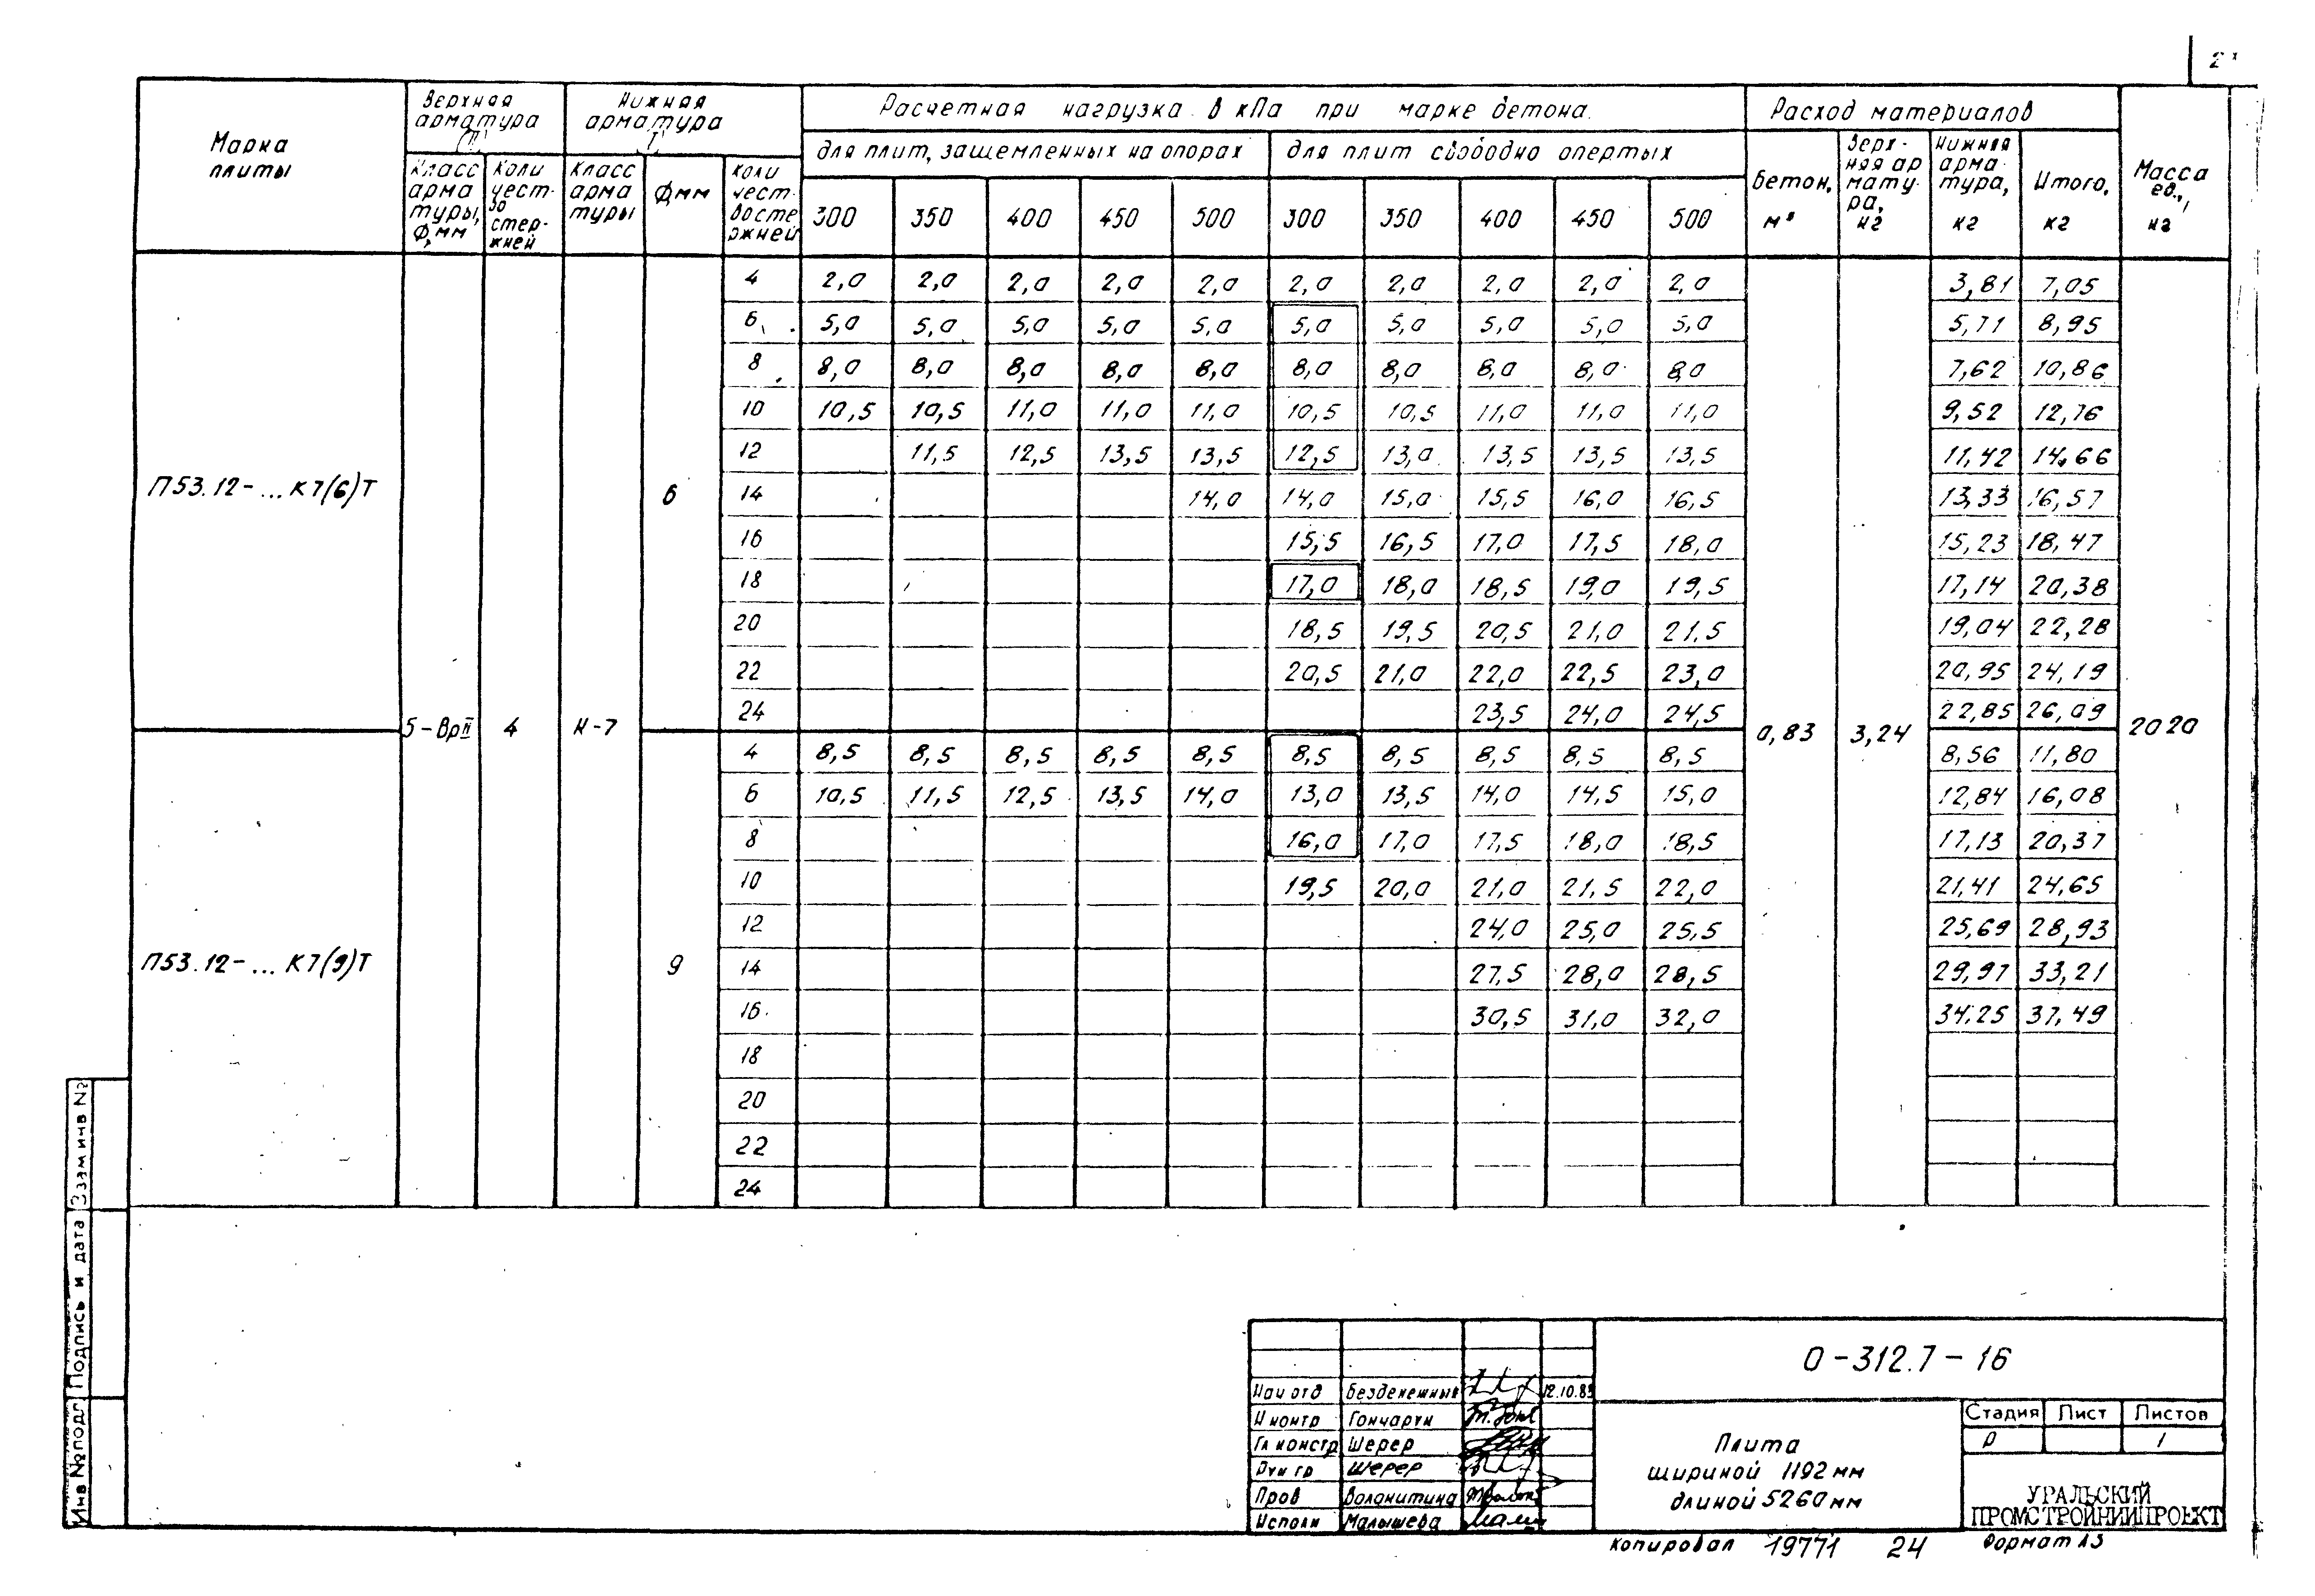 Марка плиты
Верхняя арматура
Нижняя арматура
Расчетная нагрузка в кПа при марке бетона
Расход материалов
Масса ед., кг
для плит, защемленных на опорах
для плит свободно опертых
Класс арматуры, Ф,мм
Количество стержней
Класс арматуры
Ф,мм
Количество стержней
300 350 400 450 500 300 350 400 450 500
Бетон, м³
Верхняя арматура, кг
Нижняя арматура, кг
Итого, кг
4 2,0 2,0 2,0 2,0 2,0 2,0 2,0 2,0 2,0 2,0 3,81 7,05
6 5,0 5,0 5,0 5,0 5,0 5,0 5,0 5,0 5,0 5,0 5,71 8,95
8 8,0 8,0 8,0 8,0 8,0 8,0 8,0 8,0 8,0 8,0 7,62 10,86
10 10,5 10,5 11,0 11,0 11,0 10,5 10,5 11,0 11,0 11,0 9,52 12,76
12 11,5 12,5 13,5 13,5 12,5 13,0 13,5 13,5 13,5 11,42 14,66
П53.12-... К7(6)Т 6 14 14,0 14,0 15,0 15,5 16,0 16,5 13,33 16,57
16 15,5 16,5 17,0 17,5 18,0 15,23 18,47
18 17,0 18,0 18,5 19,0 19,5 17,14 20,38
20 18,5 19,5 20,5 21,0 21,5 19,04 22,28
22 20,5 21,0 22,0 22,5 23,0 20,95 24,19
24 23,5 24,0 24,5 22,85 26,09
5-ВрII 4 К-7 0,83 3,24 2020
4 8,5 8,5 8,5 8,5 8,5 8,5 8,5 8,5 8,5 8,5 8,56 11,80
6 10,5 11,5 12,5 13,5 14,0 13,0 13,5 14,0 14,5 15,0 12,84 16,08
8 16,0 17,0 17,5 18,0 18,5 17,13 20,37
10 19,5 20,0 21,0 21,5 22,0 21,41 24,65
12 24,0 25,0 25,5 25,69 28,93
П53.12-... К7(9)Т 9 14 27,5 28,0 28,5 29,97 33,21
16 30,5 31,0 32,0 34,25 37,49
18
20
22
24
Взам инв №
Подпись и дата
Инв № подл
О-312.7-16
Нач отд Безденежных 12.10.83
Н контр Гончарук
Гл констр Шерер
Рук гр Шерер
Пров Волокитина
Исполн Малышева
Плита
шириной 1192 мм
длиной 5260 мм
Стадия Лист Листов
Р 1
УРАЛЬСКИЙ
ПРОМСТРОЙНИИПРОЕКТ
Копировал 19771 24 Формат А3